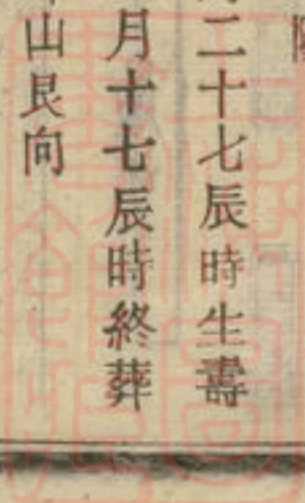 二十七辰時生壽
月十七辰時終葬
山艮向